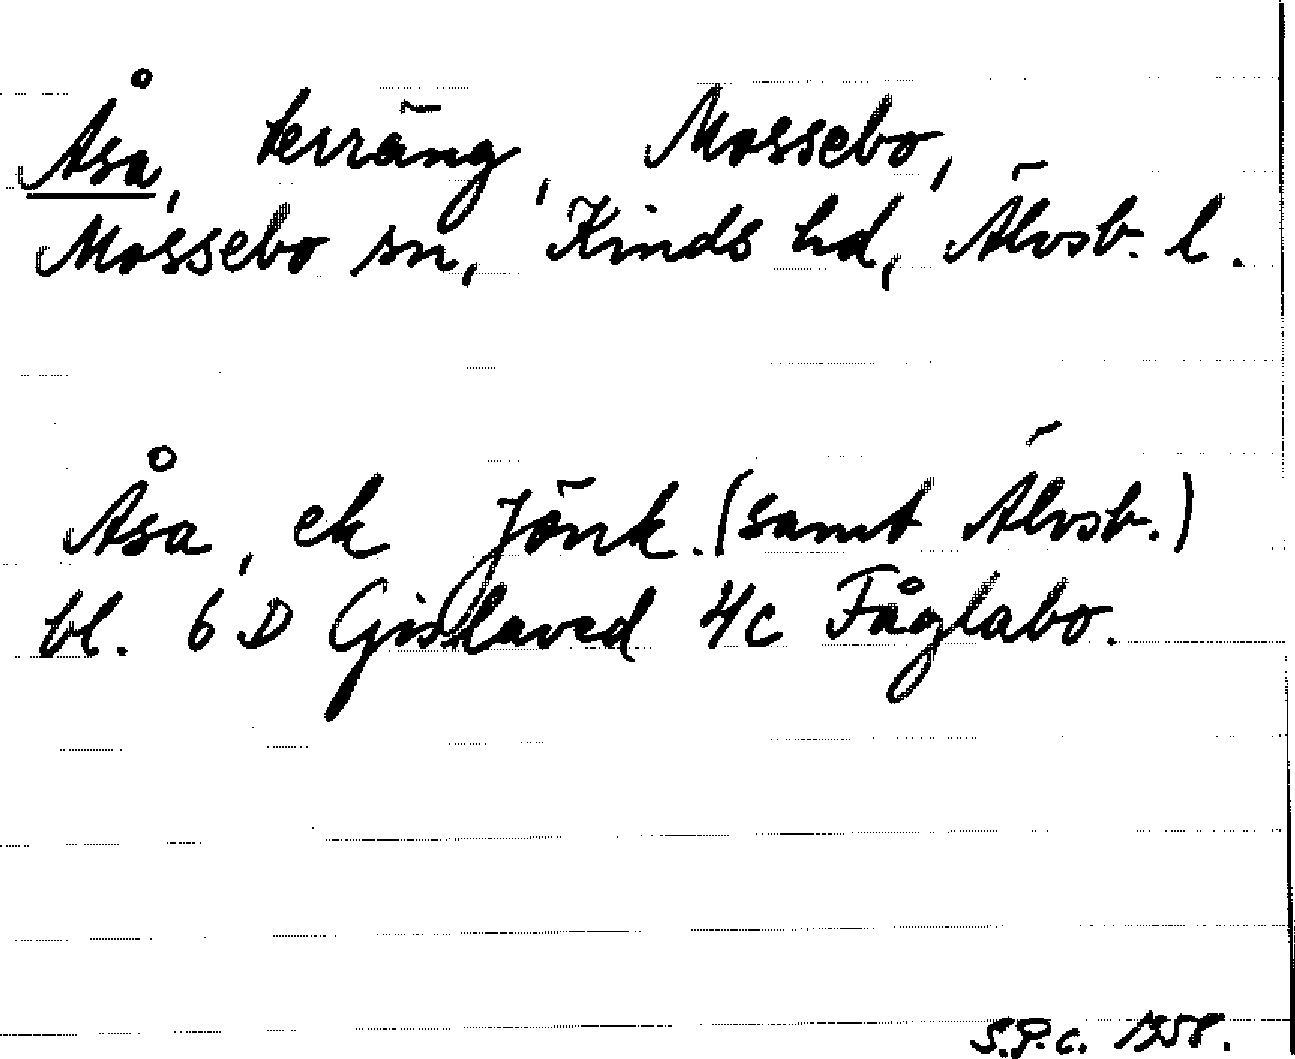 Åsa, terräng, Mossebo,
Mossebo sn, Kinds hd, Älvsb. l.
Åsa, ek Jönk. (samt Älvsb.)
bl. 6 D Gislaved 4c Fåglabo.
S.P.c. 1958.